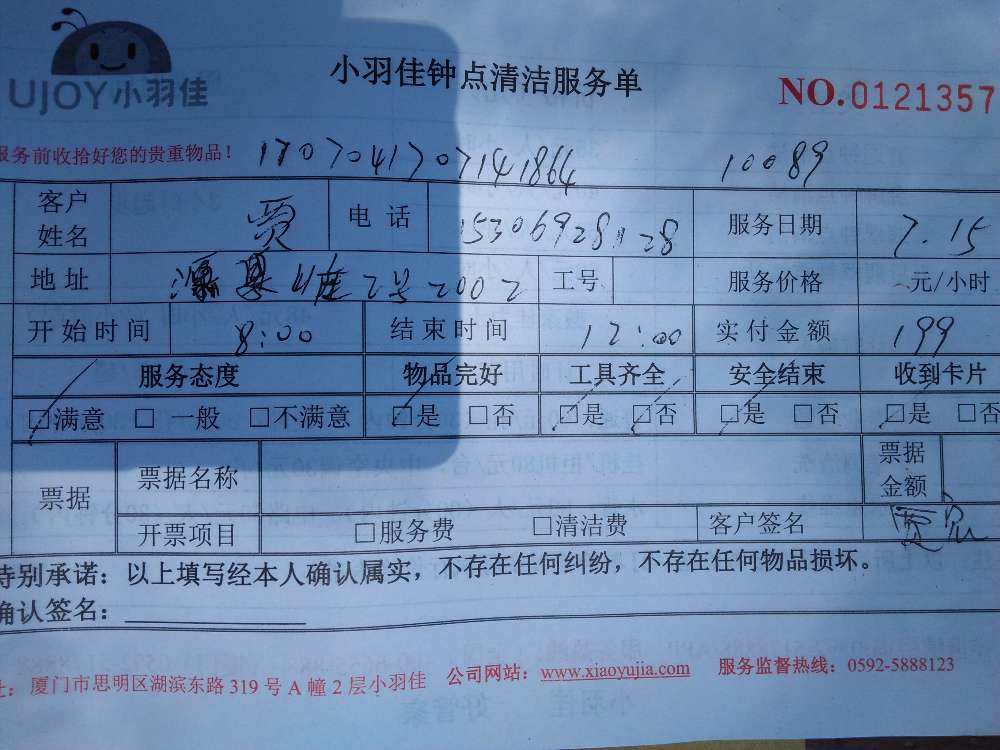 UJOY小羽佳
小羽佳钟点清洁服务单
NO.0121357
服务前收拾好您的贵重物品！ 1707041707141864 10089
客户姓名 贾 电话 服务日期 7.15
地址 2号2002 工号 服务价格 元/小时
开始时间 8:00 结束时间 12:00 实付金额 199
服务态度 物品完好 工具齐全 安全结束 收到卡片
□满意 □ 一般 □不满意 □是 □否 □是 □否 □是 □否 □是 □否
票据 票据名称 票据金额
开票项目 □服务费 □清洁费 客户签名 贾
特别承诺：以上填写经本人确认属实，不存在任何纠纷，不存在任何物品损坏。
确认签名：
址：厦门市思明区湖滨东路319号A幢2层小羽佳 公司网站：www.xiaoyujia.com 服务监督热线：0592-5888123